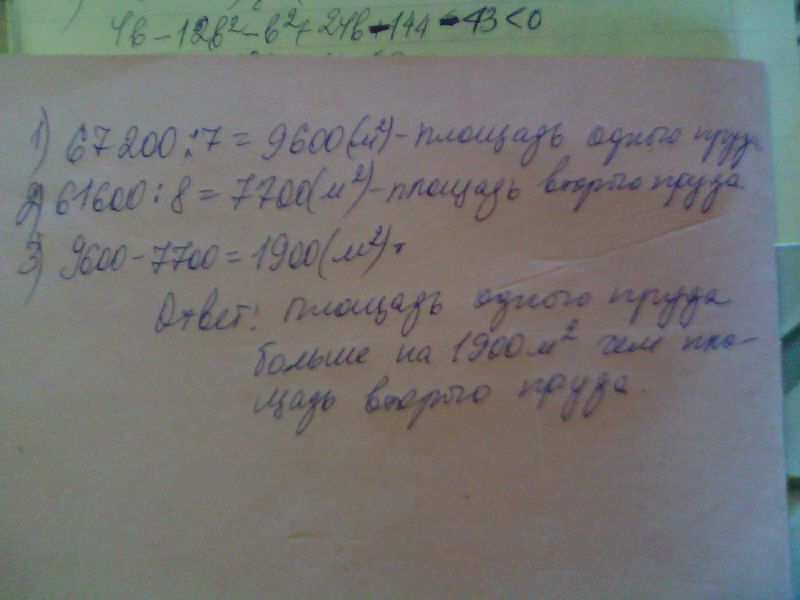 4в - 12в² - в² + 24в - 144 - 43 < 0
1) 67200 : 7 = 9600 (м²) - площадь одного пруда
2) 61600 : 8 = 7700 (м²) - площадь второго пруда
3) 9600 - 7700 = 1900 (м²).
Ответ: площадь одного пруда
больше на 1900 м² чем пло-
щадь второго пруда.